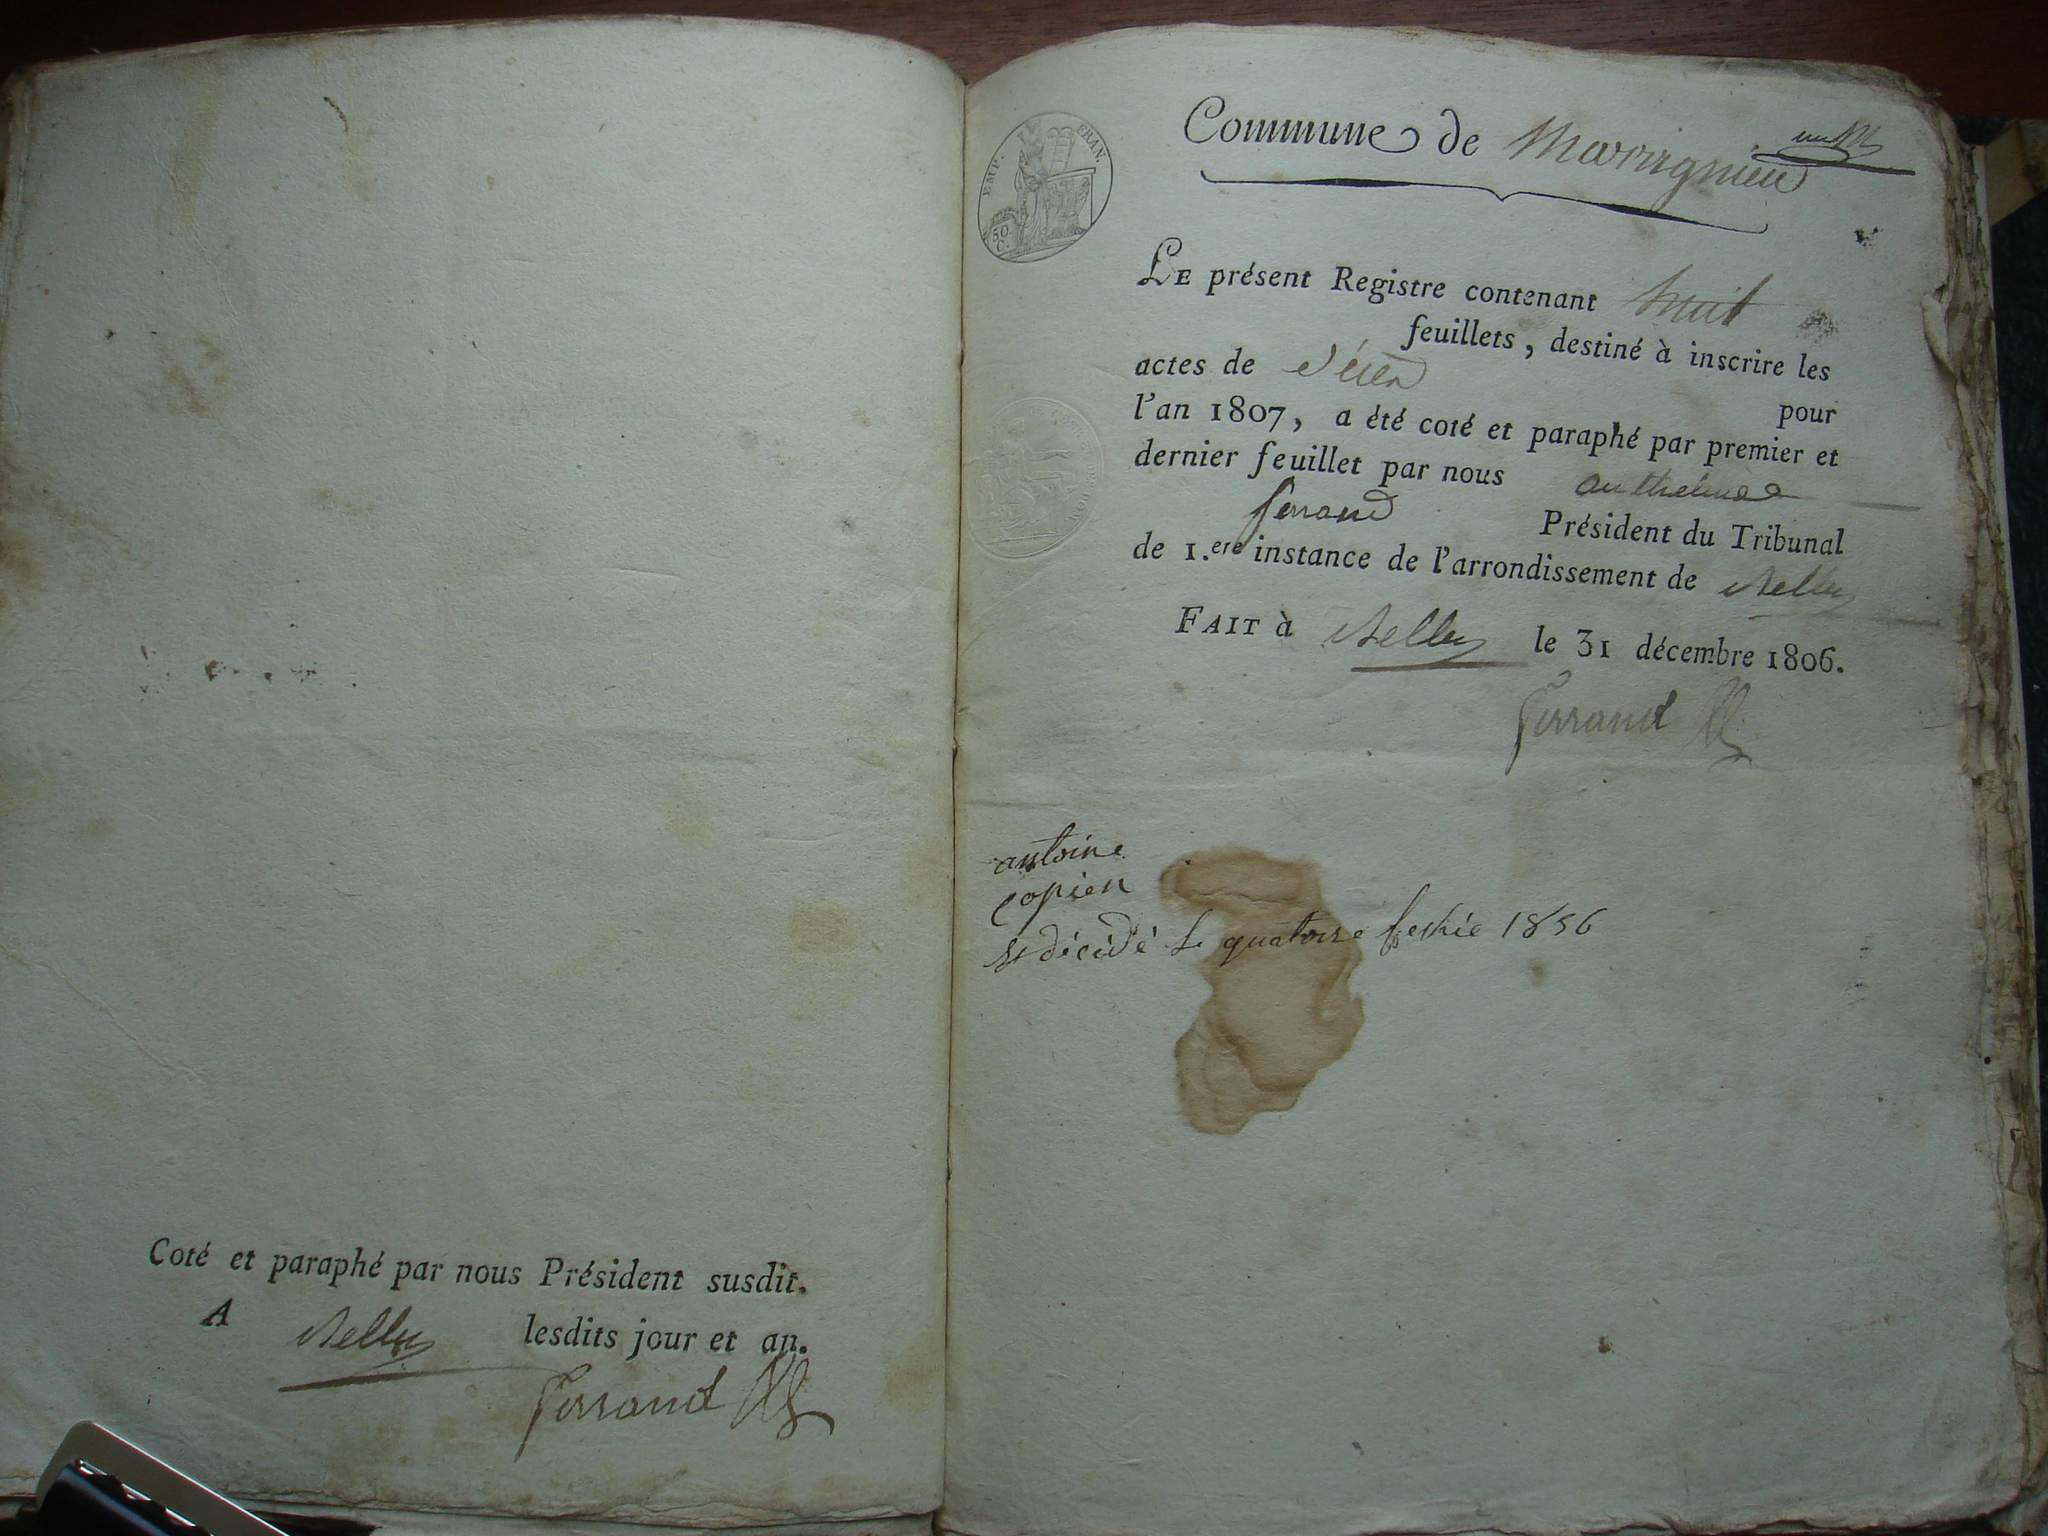 Coté et paraphé par nous Président susdit.
A Belley lesdits jour et an.
Ferrand
EMP. FRAN.
50.
C.
Commune de Marignieu
un
LE présent Registre contenant huit
feuillets, destiné à inscrire les
actes de décès pour
l'an 1807, a été coté et paraphé par premier et
dernier feuillet par nous anthelme
ferrand Président du Tribunal
de 1.ere instance de l'arrondissement de Belley
FAIT à Belley le 31 décembre 1806.
Ferrand
antoine
copien
décidé le quatorse 1856